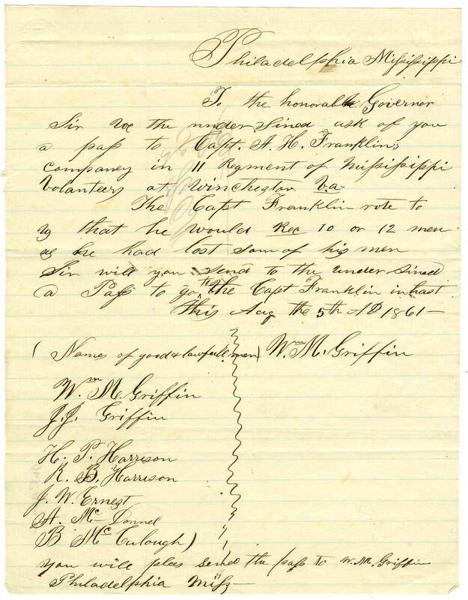 Philadelphia Mississippi
To the honorable Governor
Sir We the under Sined ask of you
a pass to Capt. A. H. Franklins
company in 11 Regment of Mississippi
Volanteers at Winchester Va
The Capt Franklin rote to
us that he would Rec 10 or 12 men
as he had lost som of his men
Sir will you send to the under Sined
a Pass to go to the Capt Franklin in hast
This Aug the 5th AD 1861—
(Names of good & lawfull men) Wm M. Griffin
Wm M. Griffin
J. J. Griffin
H. P. Harrison
R. B. Harrison
J. W. Ernest
A. Mc Donnel
B Mc Culough)
you will pleas send the pass to W. M. Griffin
Philadelphia Miss—